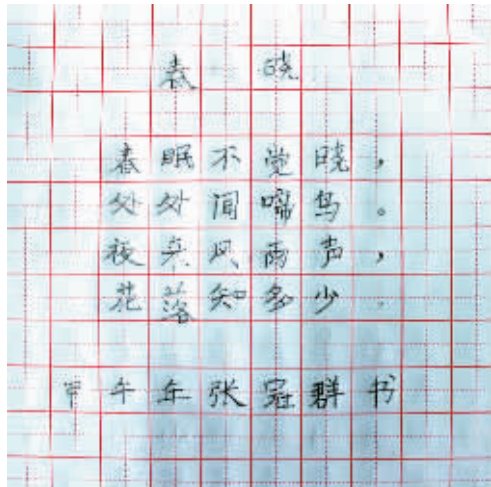 春晓
春眠不觉晓，
处处闻啼鸟。
夜来风雨声，
花落知多少.
甲午年张冠群书